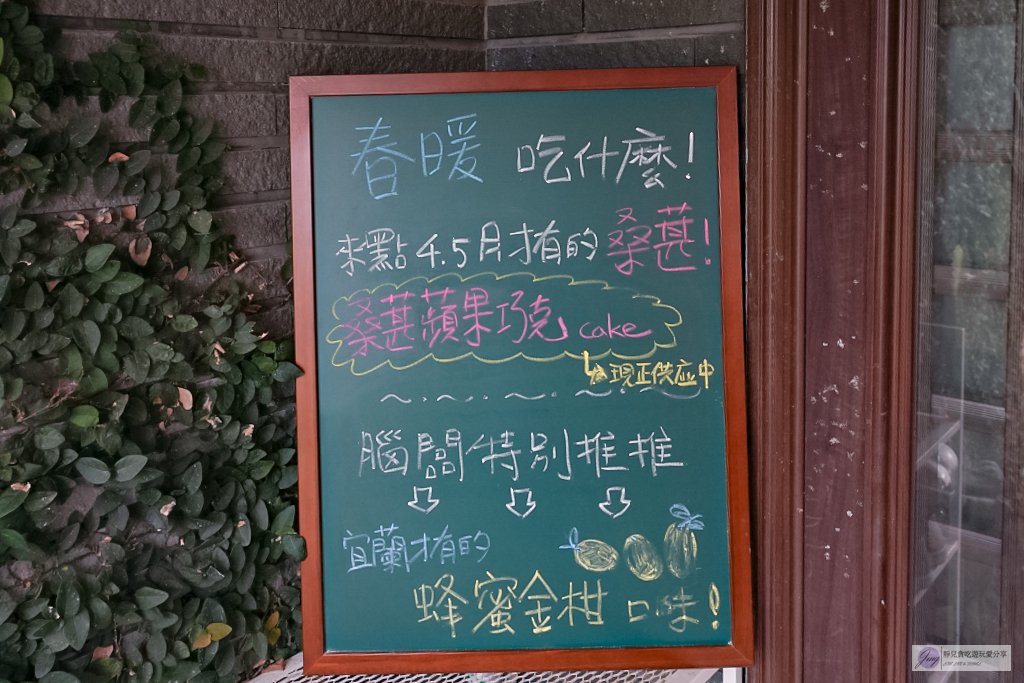 春暖 吃什麼!
來點4.5月才有的桑葚!
桑葚蘋果巧克 cake
現正供应中
腦闆特別推推
宜蘭才有的
蜂蜜金柑 口味!
Jing
靜兒貪吃遊玩愛分享